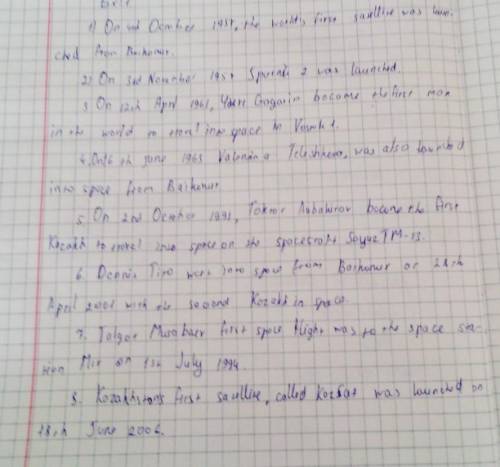 1) On 3rd October 1957, the world's first satellite was laun-
ched from Baikonur.
2) On 3rd November 1957 Sputnik 2 was launched.
3 On 12th April 1961, Gagarin become the first man
in the world to travel into space in Vostok 1.
4. On 16 th June 1963 Valentina Tereshkova, was also launched
into space from Baikonur.
5. On 2nd October 1991, Toktar Aubakirov become the first
Kazakh to travel into space on the spacecraft Soyuz TM-13.
6. Dennis Tito went into space from Baikonur on 28th
April 2001 with the second Kazakh in space.
7. Talgat Musabaev first space flight was to the space sta-
tion Mir on 1st July 1994.
8. Kazakhstans first satellite, called KazSat was launched on
18th June 2006.